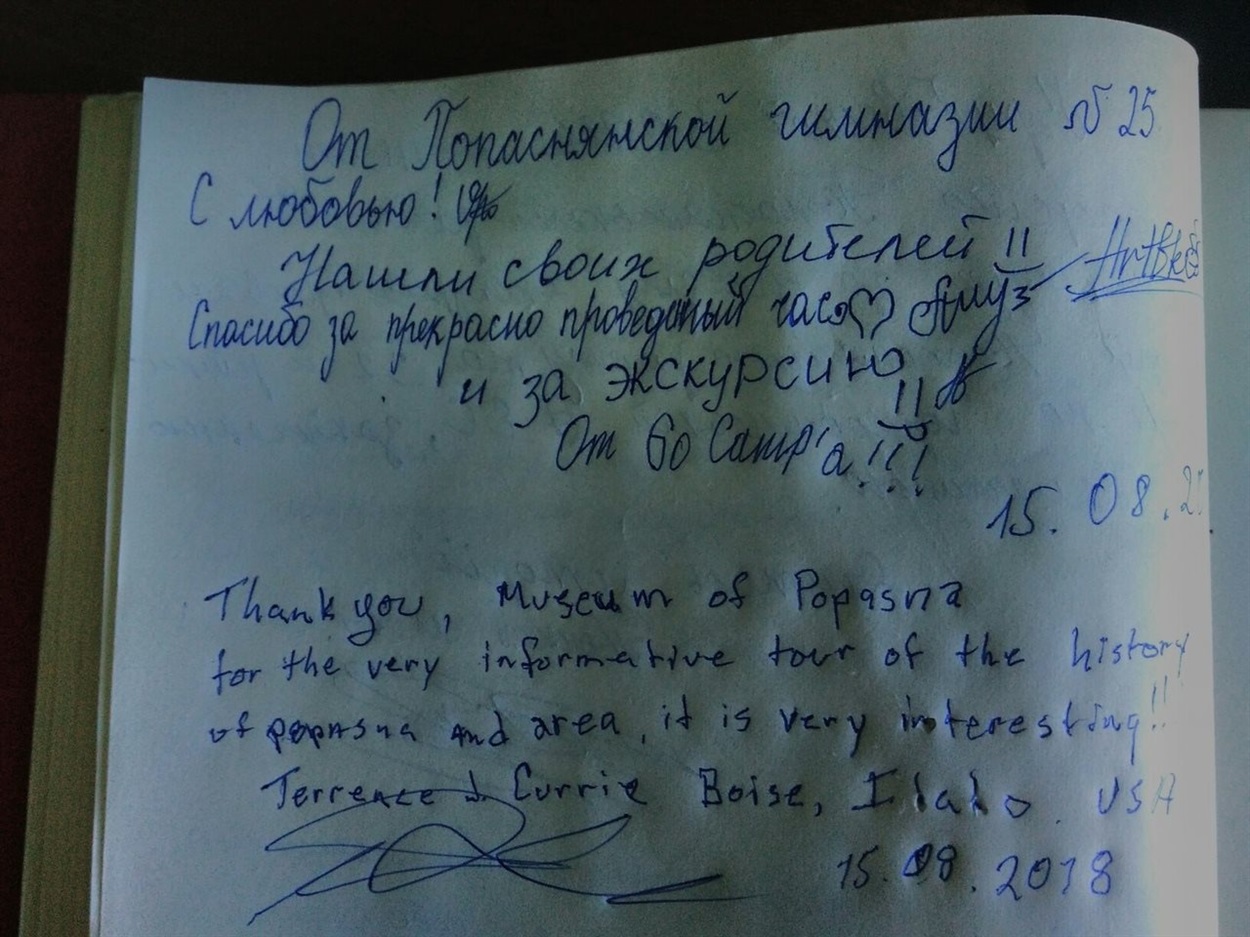 От Попаснянской гимназии №25
С любовью!
Нашли своих родителей !!
Спасибо за прекрасно проведеный час
и за экскурсию !!
От Go Camp'а!!!
15.08.2
Thank you, Museum of Popasna
for the very informative tour of the history
of popasna and area, it is very interesting!!
Terrence J Currie Boise, Idaho. USA
15.08.2018